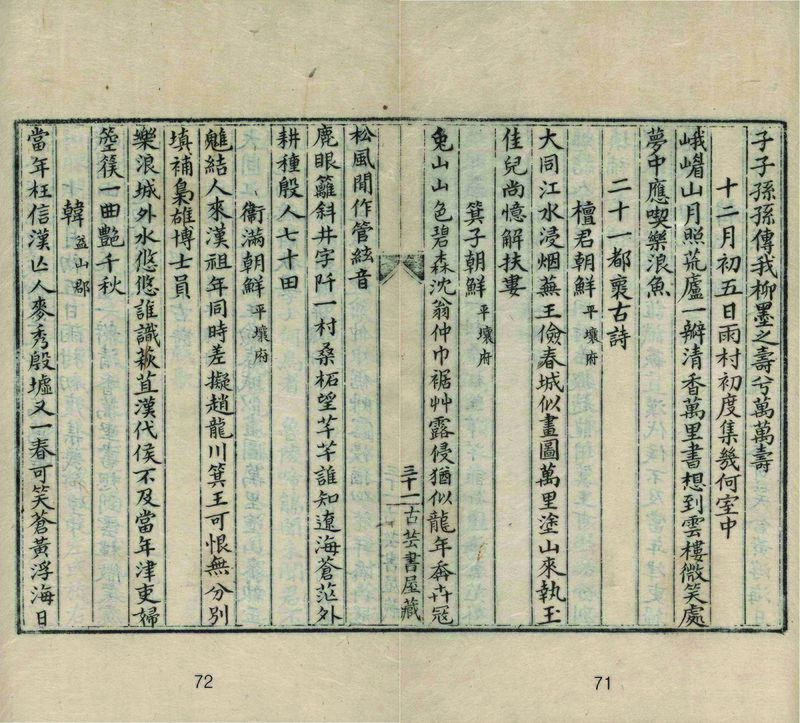 子子孫孫傳我柳墨之壽兮萬萬壽
十二月初五日雨村初度集幾何室中
峨嵋山月照荒廬一瓣清香萬里書想到雲樓微笑處
夢中應喫樂浪魚
二十一都褱古詩
檀君朝鮮 平壤府
大同江水浸烟蕪王儉春城似畫圖萬里塗山來執玉
佳兒尚憶解扶婁
箕子朝鮮 平壤府
兔山山色碧森沈翁仲巾裾艸露侵猶似龍年奔卉冠
三十二 古芸書屋藏
松風閒作管絃音
鹿眼籬斜井字阡一村桑柘望芊芊誰知遼海蒼茫外
耕種殷人七十田
衞滿朝鮮 平壤府
魋結人來漢祖年同時差擬趙龍川箕王可恨無分別
塡補梟雄博士員
樂浪城外水悠悠誰識萩苴漢代侯不及當年津吏婦
箜篌一曲艷千秋
韓 益山郡
當年枉信漢亾人麥秀殷墟又一春可笑蒼黃浮海日
72
71